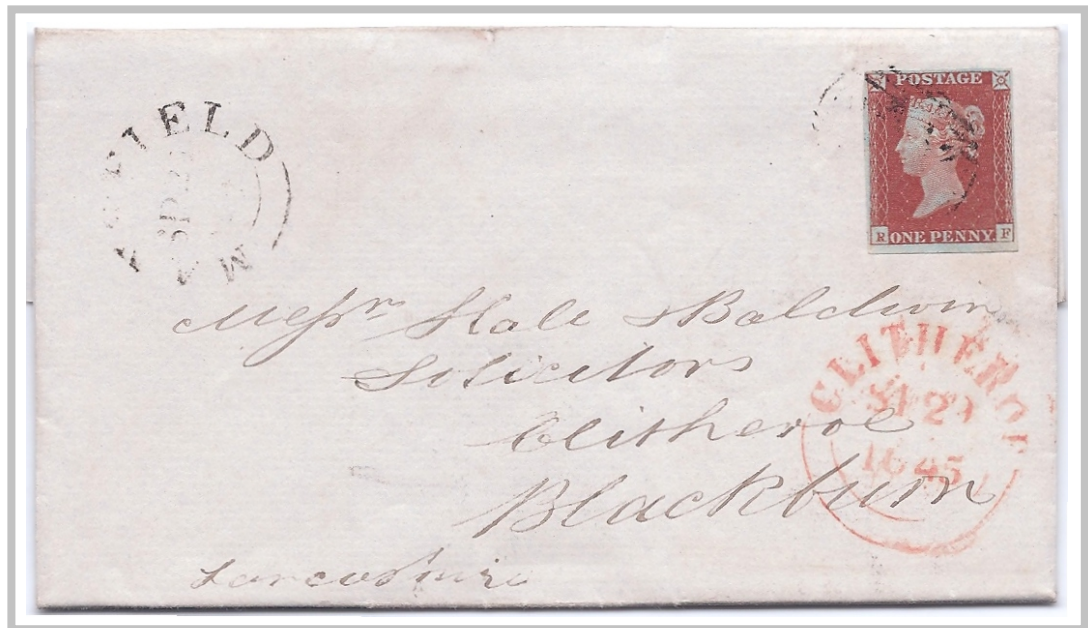 FIELD
SP 2
M
POSTAGE
R ONE PENNY F
Messrs Hall & Baldwin
Solicitors
Clitheroe
Blackburn
Lancashire
CLITHEROE
SP 29
1845